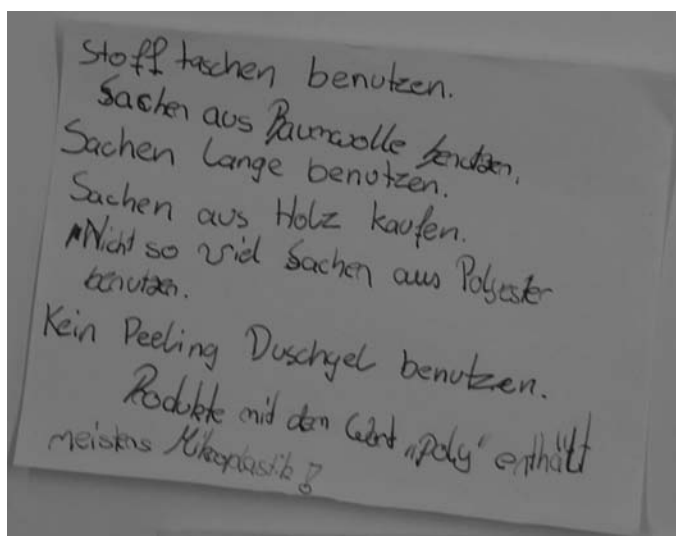 Stofftaschen benutzen.
Sachen aus Baumwolle benutzen.
Sachen Lange benutzen.
Sachen aus Holz kaufen.
Nicht so viel Sachen aus Polyester
benutzen.
Kein Peeling Duschgel benutzen.
Produkte mit dem Wort „poly“ enthält
meistens Mikroplastik!